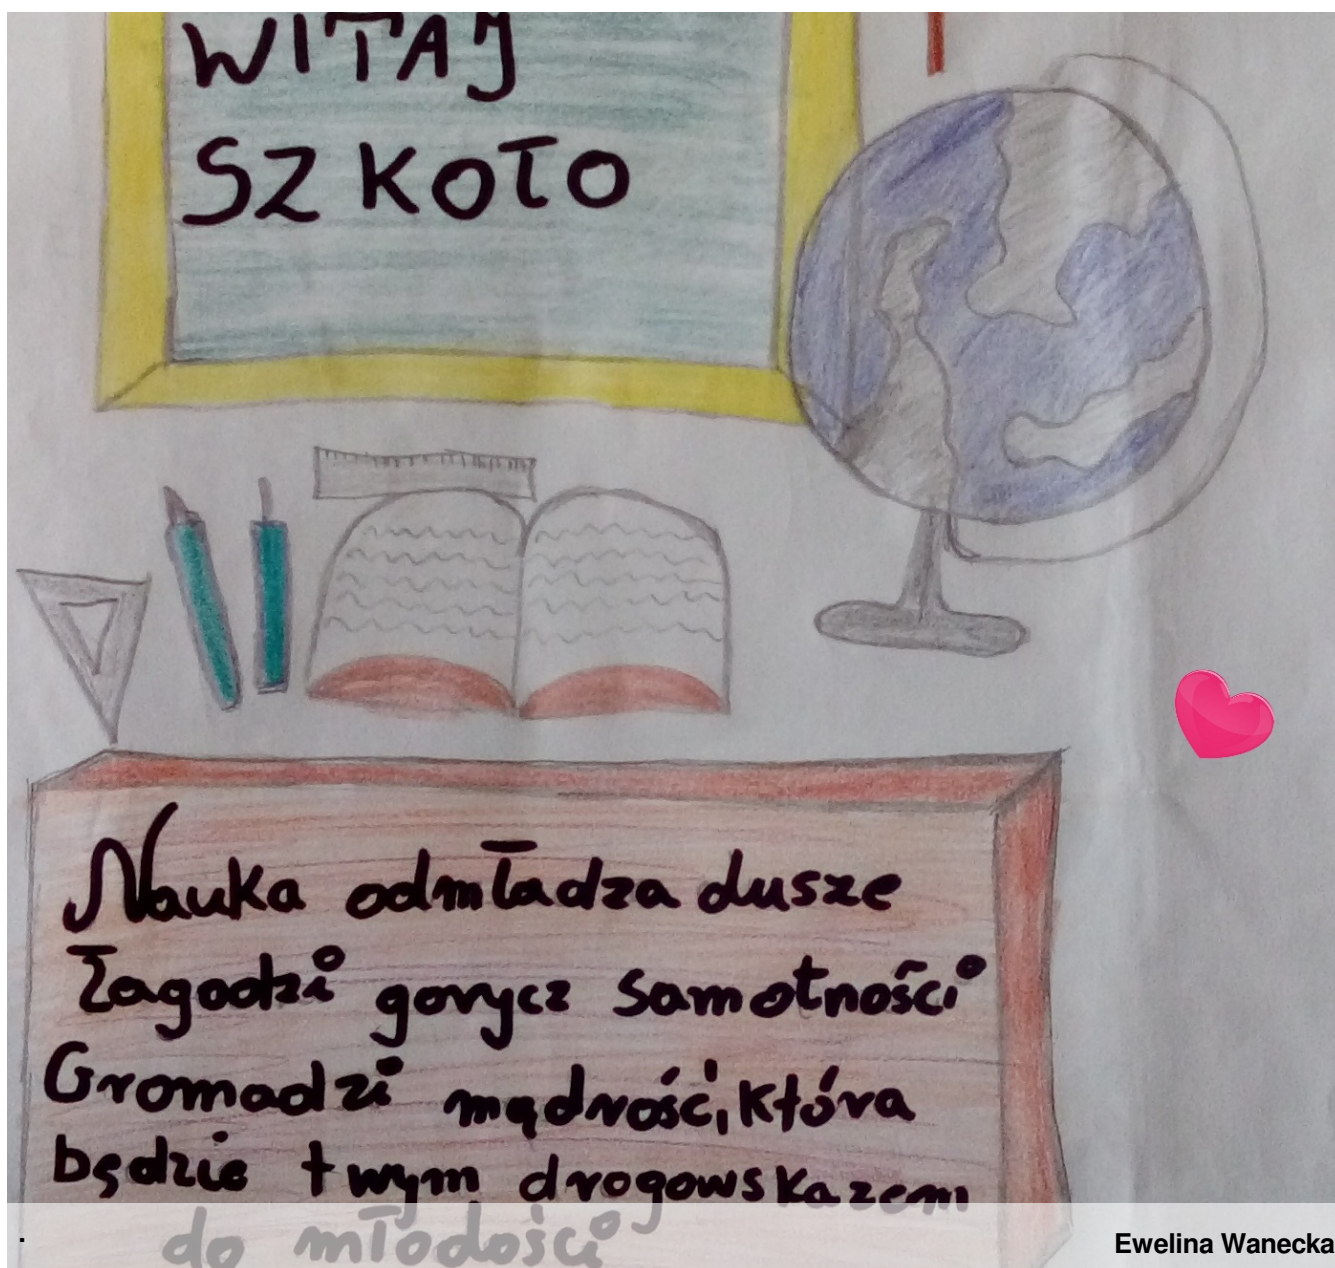 WITAJ
SZKOŁO
Nauka odmładza dusze
Łagodzi gorycz samotności
Gromadzi mądrość, która
będzie twym drogowskazem
do młodości
. Ewelina Wanecka